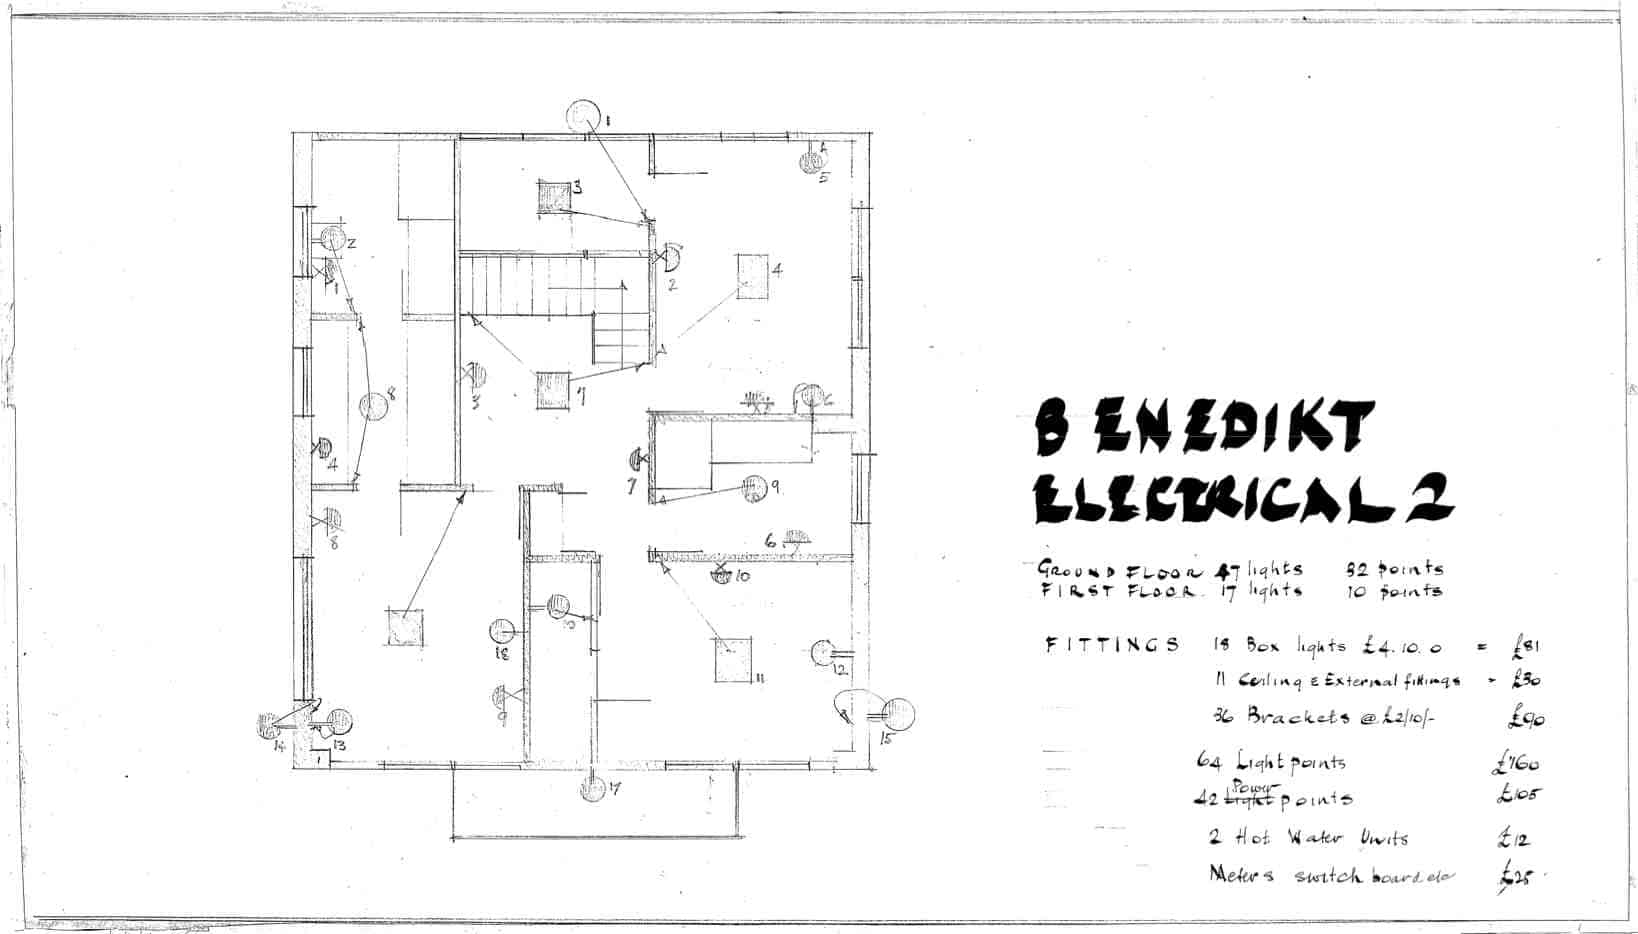 1
3
5
2
4
1
2
8
3
7
6
4
7
9
8
6
10
18
12
11
9
14
13
15
17
BENEDIKT
ELECTRICAL 2
GROUND FLOOR 47 lights 32 points
FIRST FLOOR. 17 lights 10 points
FITTINGS 18 Box lights £4.10.0 = £81
11 Ceiling & External fittings - £30
36 Brackets @ £2/10/- £90
64 Light points £160
Power
42 Light points £105
2 Hot Water Units £12
Meters switch board etc £25